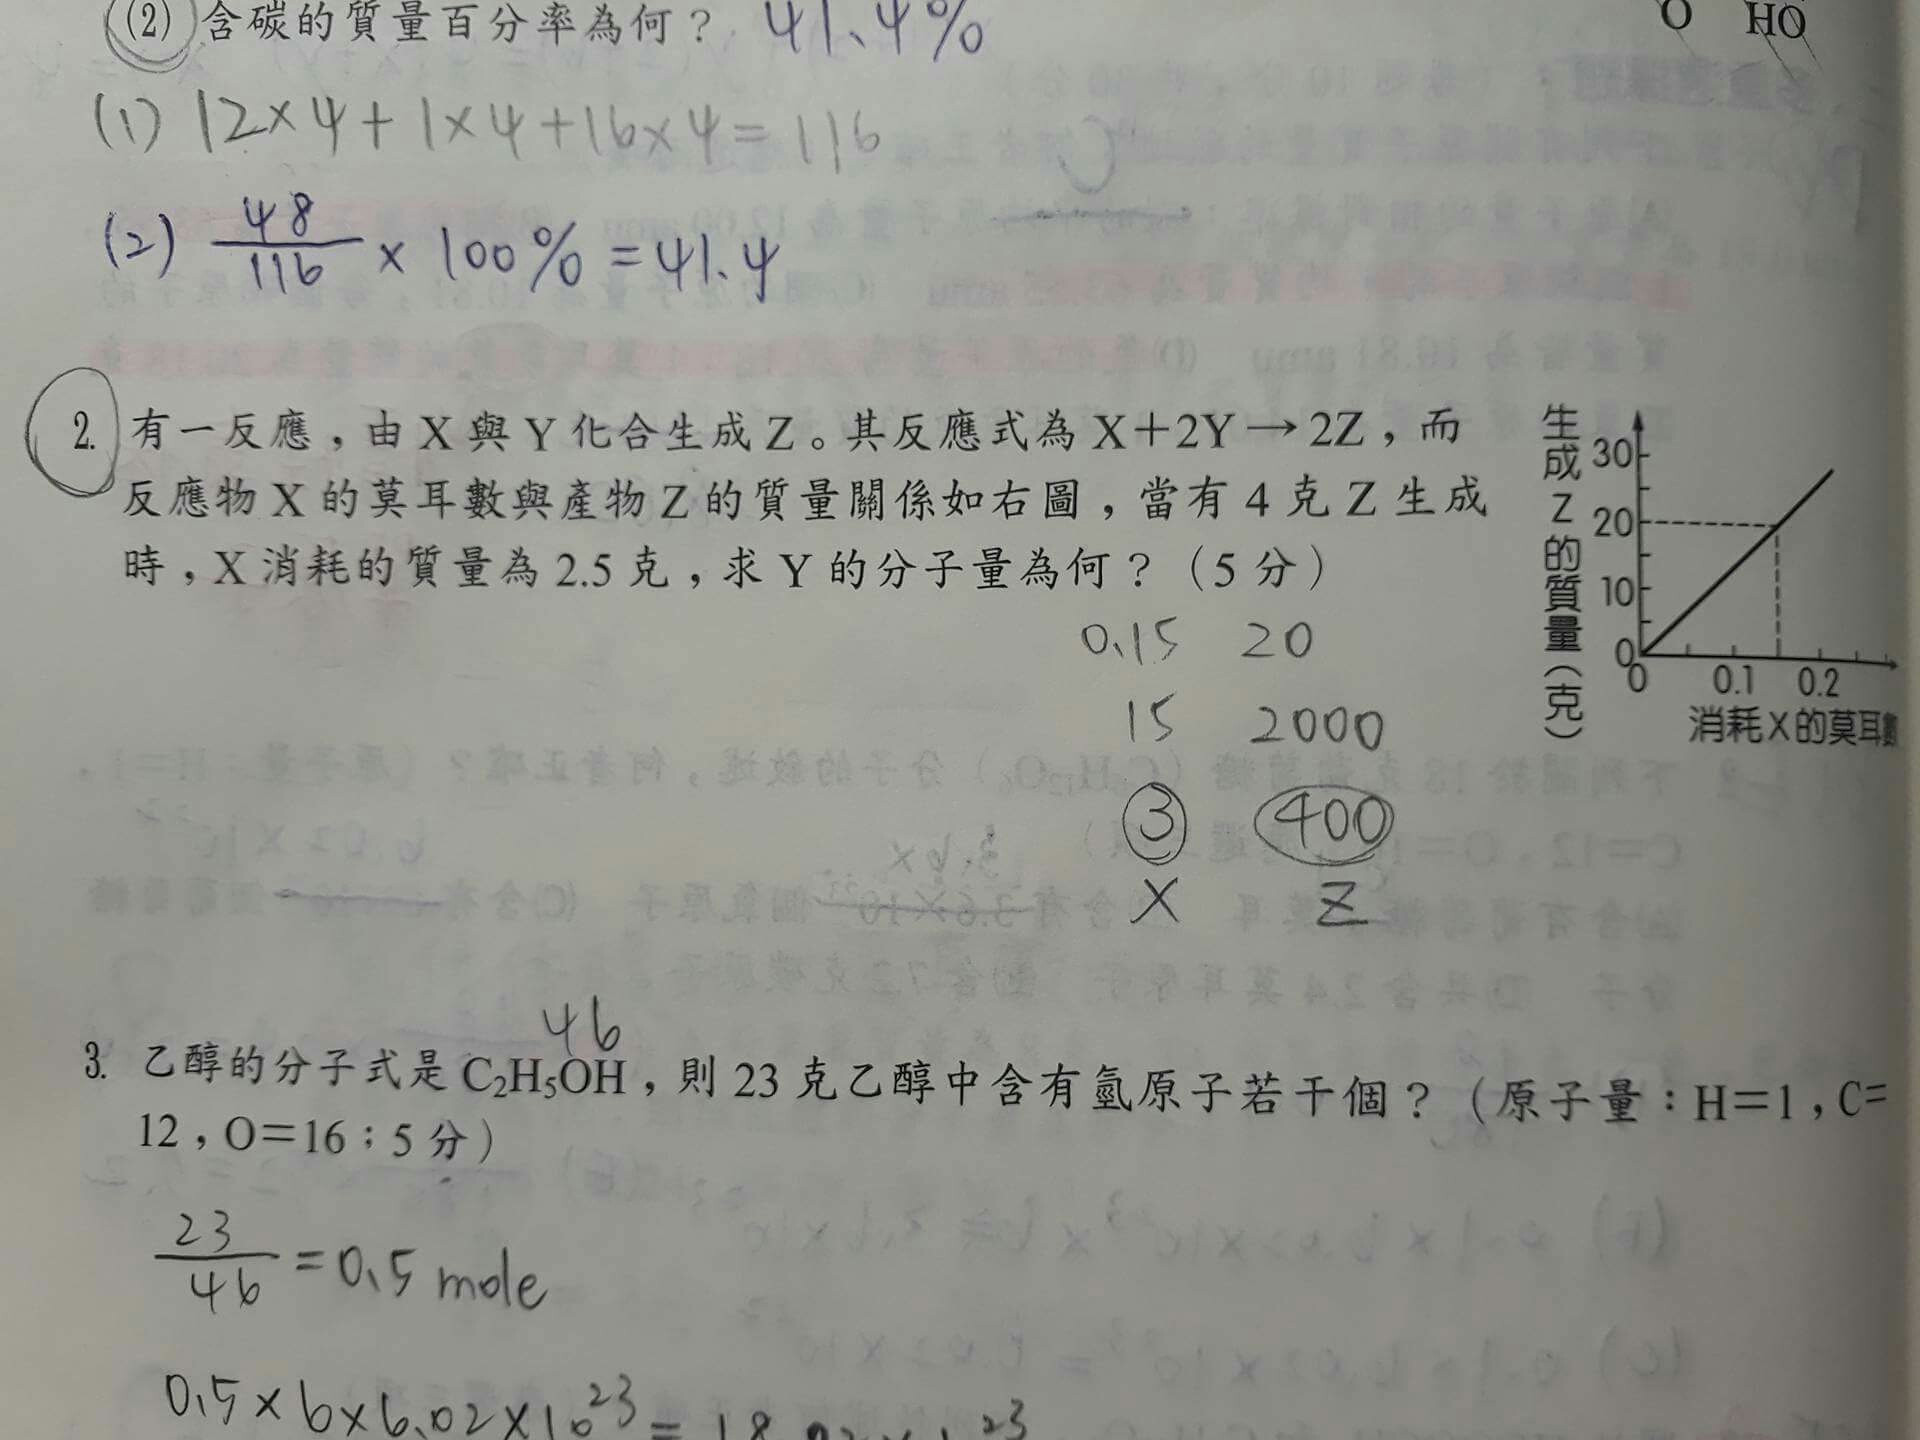 (2) 含碳的質量百分率為何？ 41.4%
O HO
(1) 12×4+1×4+16×4=116
(2) 48/116 × 100% = 41.4
2. 有一反應，由 X 與 Y 化合生成 Z。其反應式為 X＋2Y→2Z，而
反應物 X 的莫耳數與產物 Z 的質量關係如右圖，當有 4 克 Z 生成
時，X 消耗的質量為 2.5 克，求 Y 的分子量為何？（5 分）
生成Z的質量(克)
30
20
10
0
0 0.1 0.2
消耗X的莫耳數
0.15 20
15 2000
3 400
X Z
46
3. 乙醇的分子式是 C₂H₅OH，則 23 克乙醇中含有氫原子若干個？（原子量：H＝1，C＝
12，O＝16；5 分）
23/46 = 0.5 mole
0.5×6×6.02×10²³=